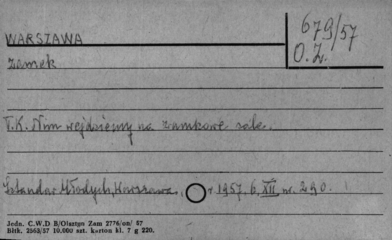 679/57
O.Z.
WARSZAWA
Zamek
T.K. Nim wejdziemy na zamkowe sale.
Sztandar Młodych, Warszawa, r 1957. 6. XII nr. 290.
Jedn. C.W.D B/Olsztyn Zam 2776/on/ 57
Bltk. 2563/57 10.000 szt. karton kl. 7 g 220.